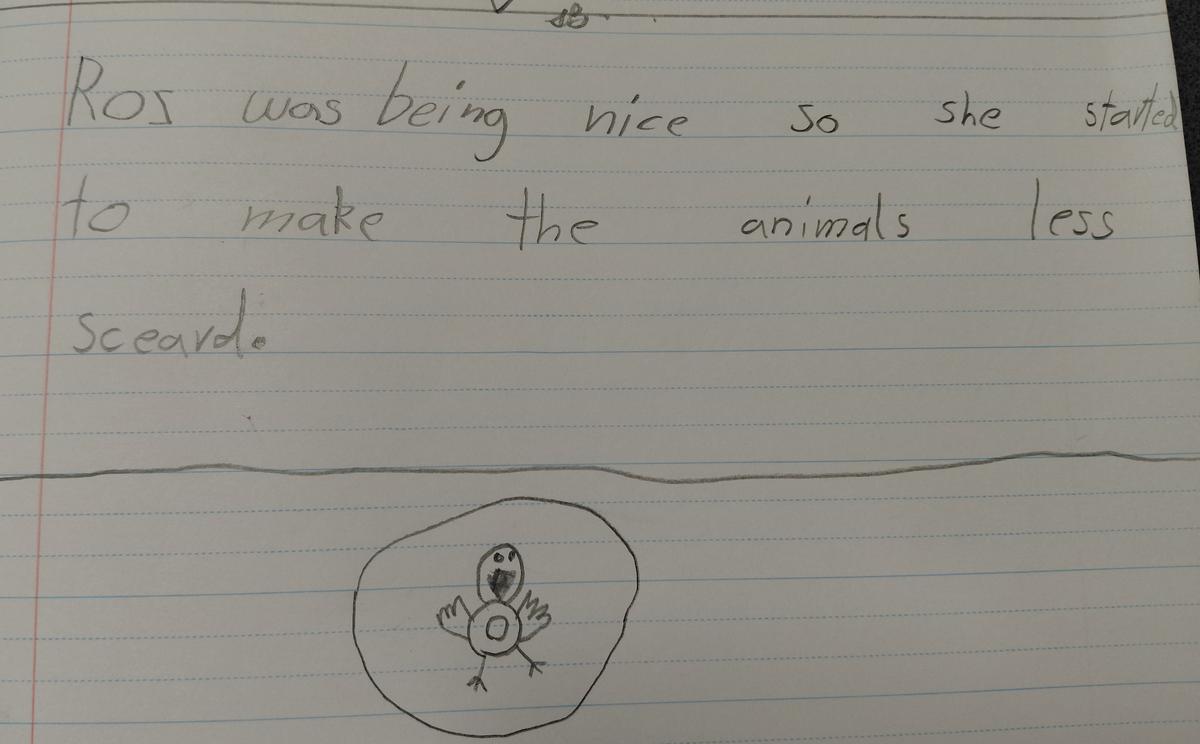 Ros was being nice so she started
to make the animals less
sceard.